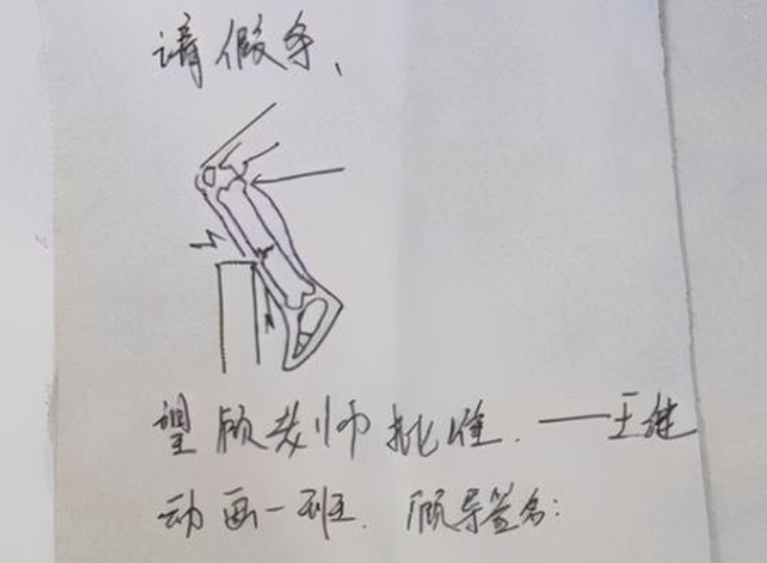 请假条、
望顾老师批准. ——王继
动画一班. 顾导签名: